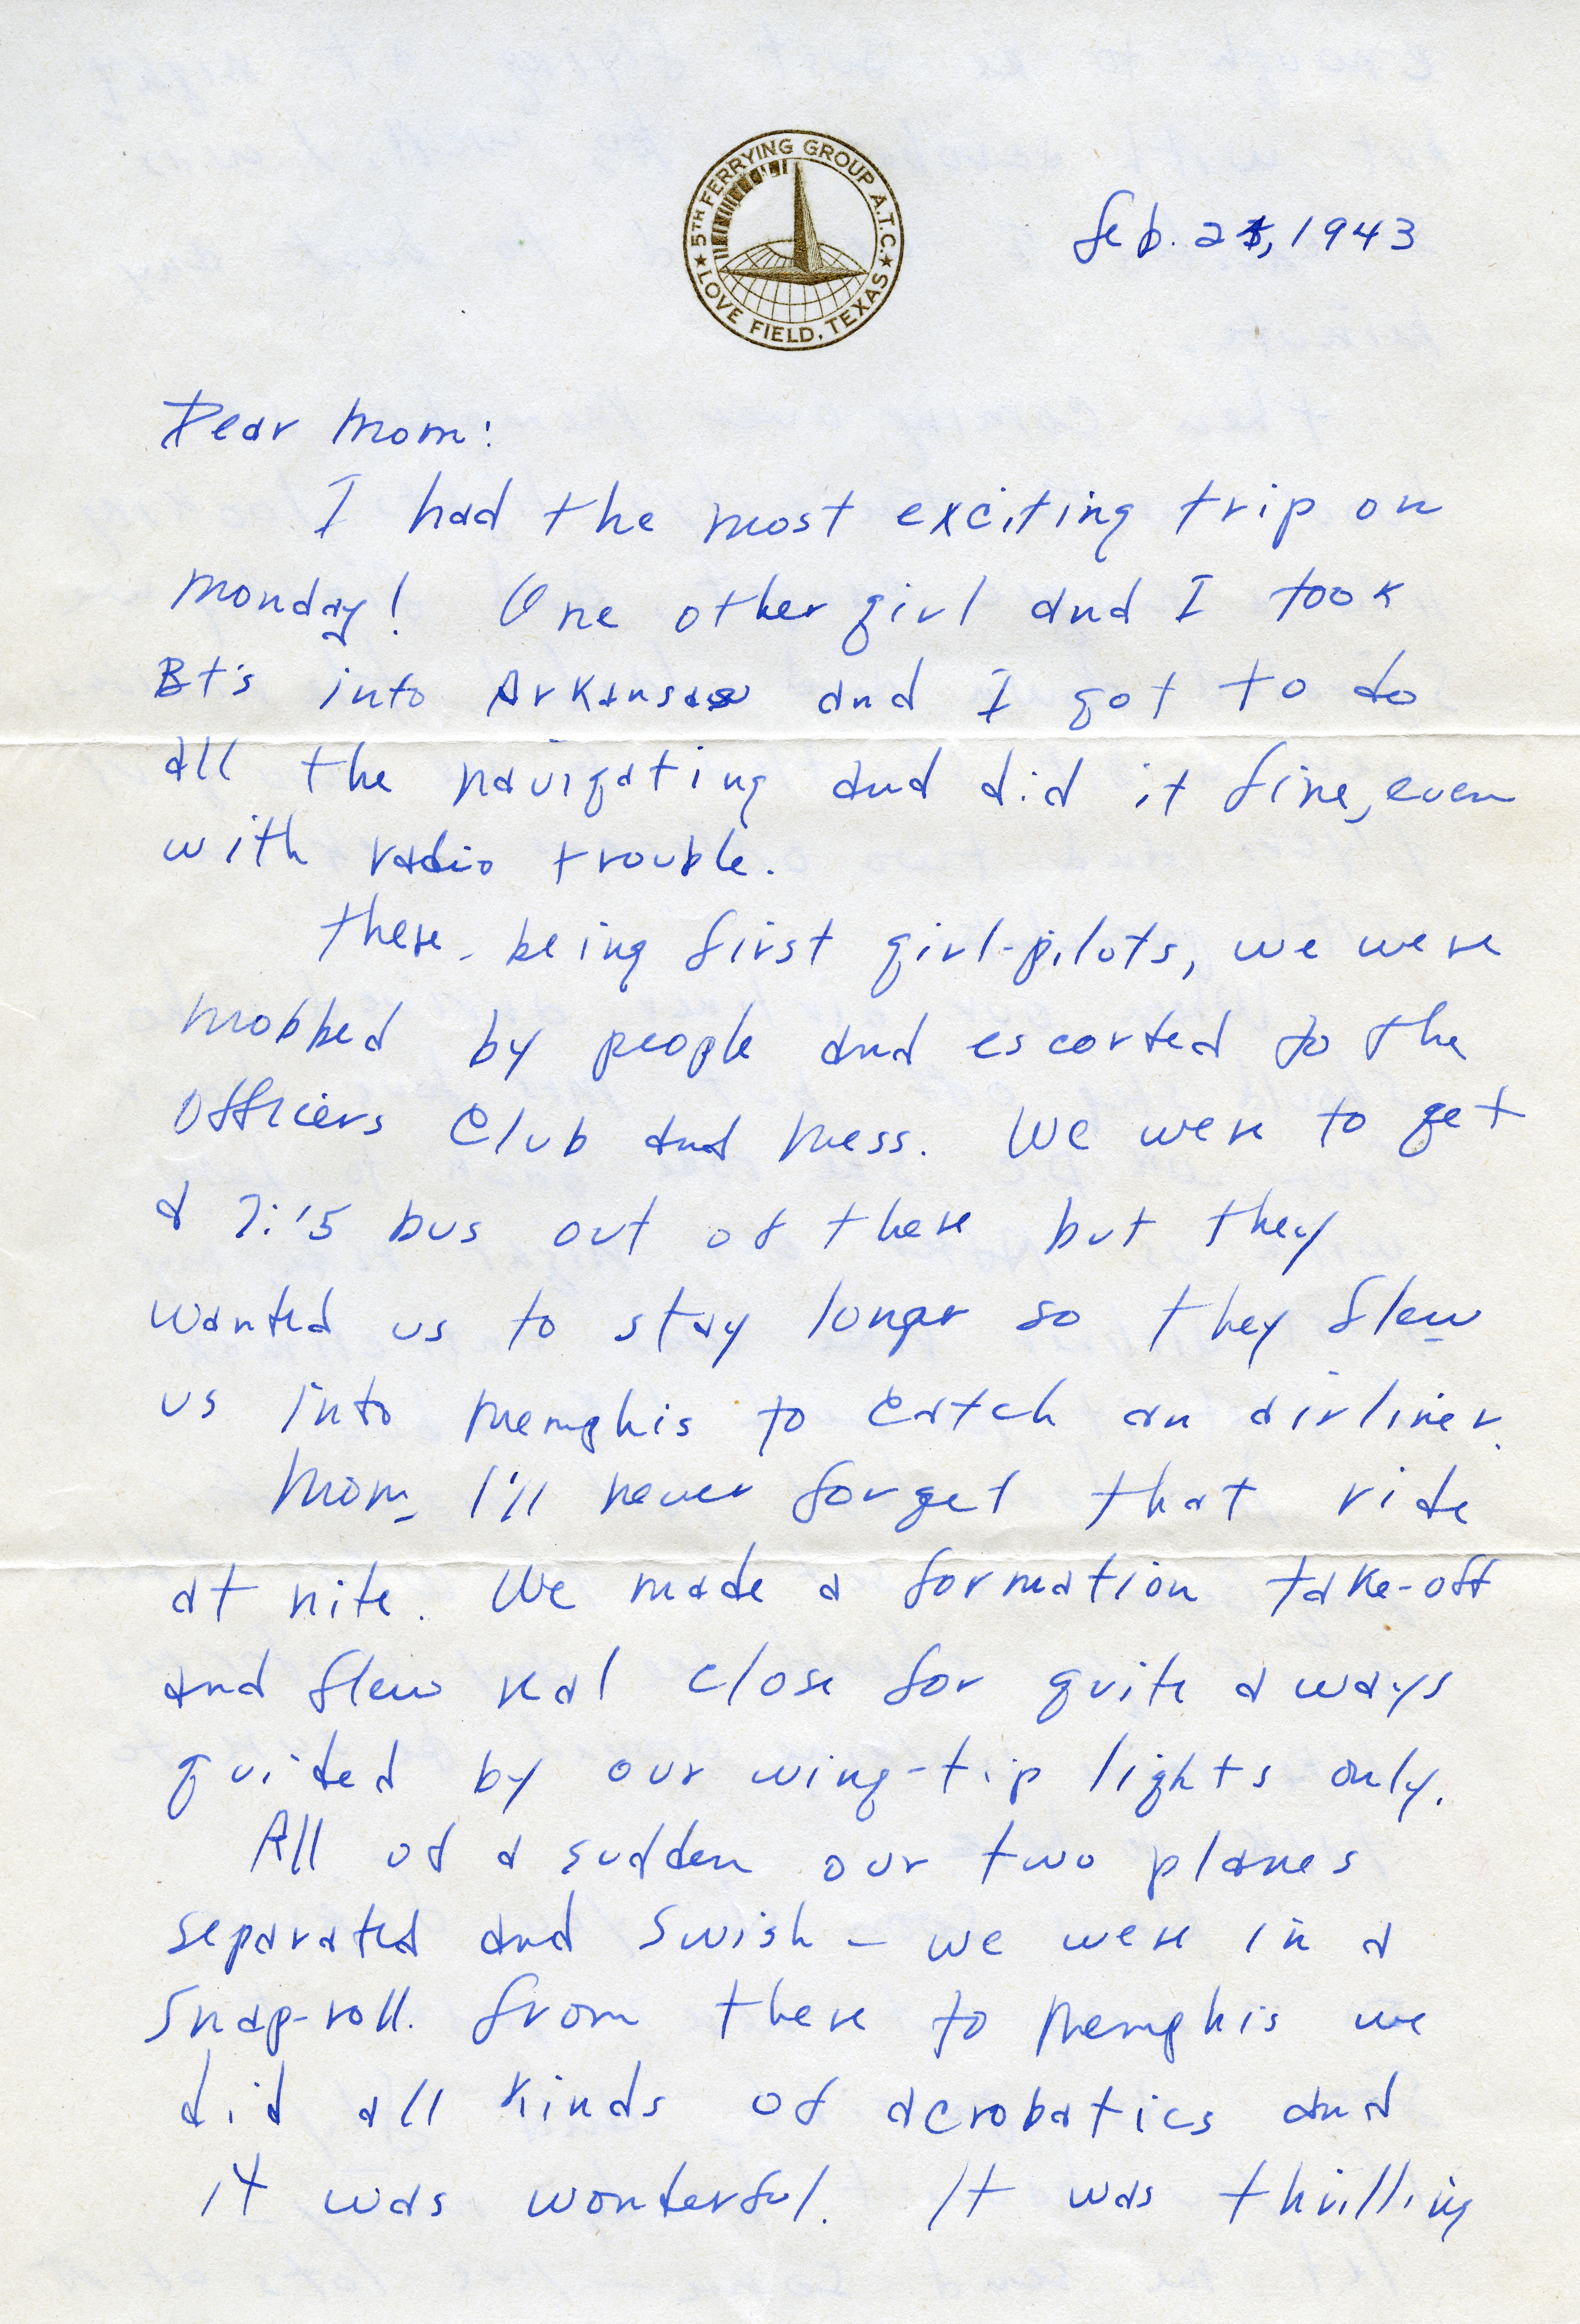 ★ 5TH FERRYING GROUP A.T.C. ★
LOVE FIELD, TEXAS
Feb. 1943
Dear Mom:
I had the most exciting trip on
Monday! One other girl and I took
Bt's into Arkansas and I got to do
all the navigating and did it fine, even
with radio trouble.
There, being first girl-pilots, we were
mobbed by people and escorted to the
Officers Club and Mess. We were to get
a 7:15 bus out of there but they
wanted us to stay longer so they flew
us into Memphis to catch an airliner.
Mom, I'll never forget that ride
at nite. We made a formation take-off
and flew real close for quite a ways
guided by our wing-tip lights only.
All of a sudden our two planes
separated and swish - we were in a
snap-roll. From there to Memphis we
did all kinds of acrobatics and
it was wonderful. It was thrilling